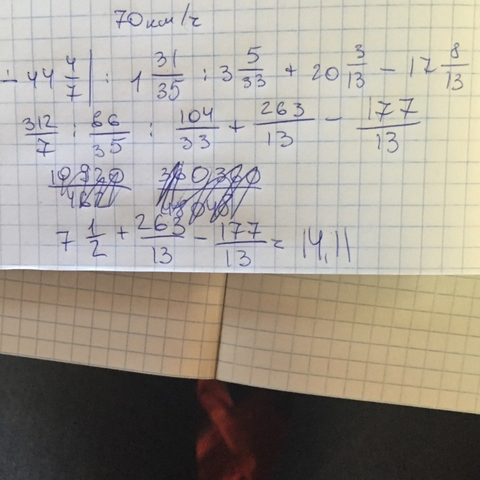 70 км/ч
÷ 44 4/7 | : 1 31/35 : 3 5/33 + 20 3/13 - 17 8/13
312/7 : 66/35 : 104/33 + 263/13 - 177/13
7 1/2 + 263/13 - 177/13 = 14,11